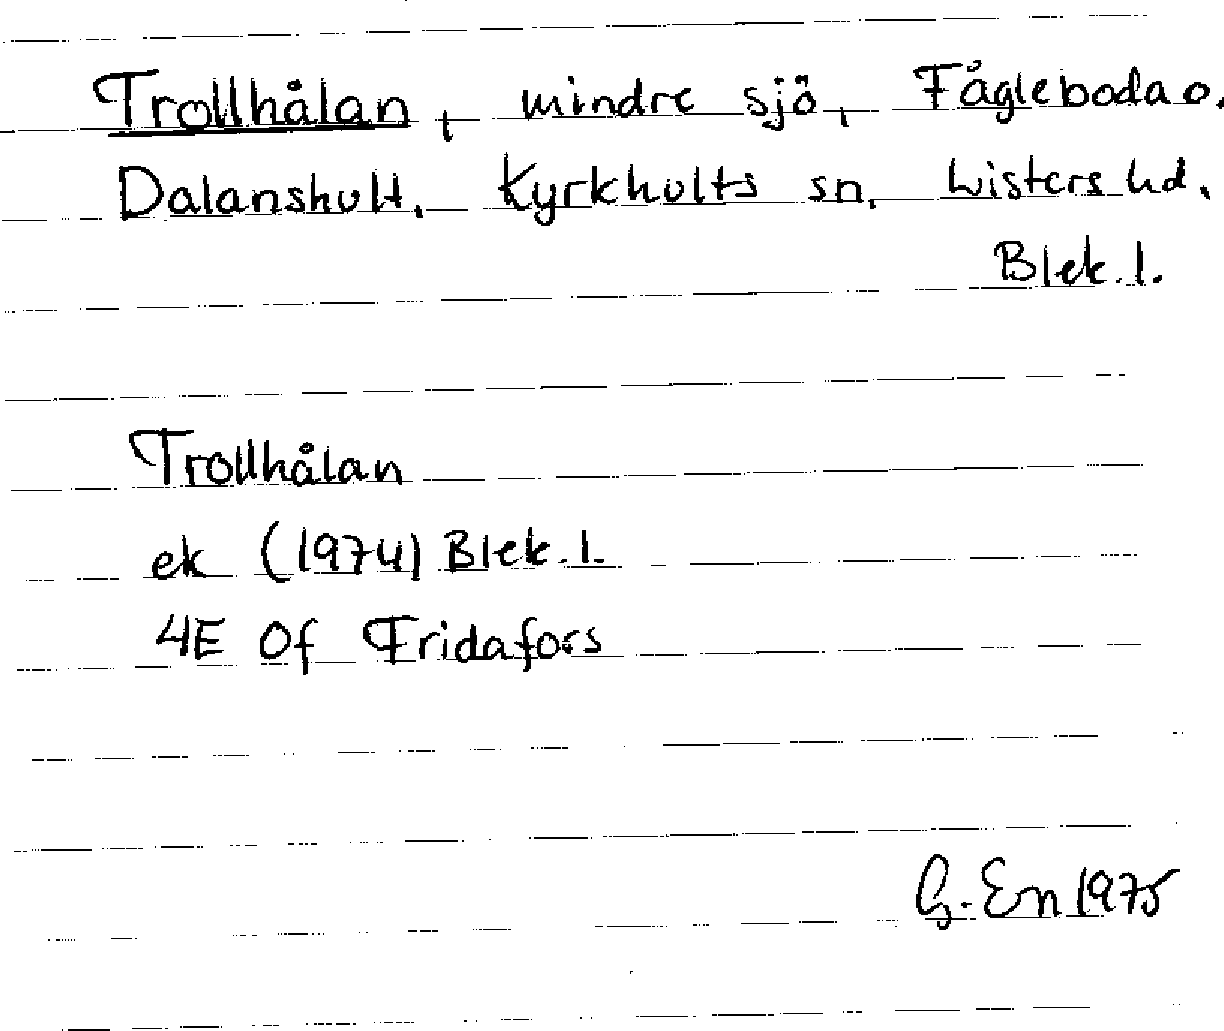 Trollhålan, mindre sjö, Fågleboda o.
Dalanshult. Kyrkhults sn. Listers hd.
Blek. l.
Trollhålan
ek (1974) Blek. l.
4E 0f Fridafors
G. En 1975